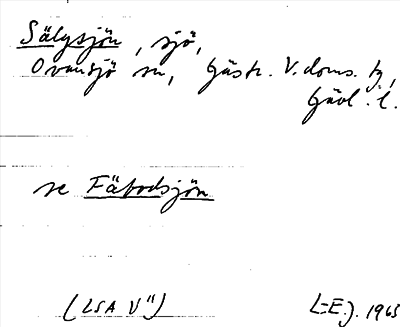 Sälgsjön, sjö,
Ovansjö sn, Gästr. V. doms. tg,
Gävl. l.
se Fäbodsjön
(LSA V")
L-E.J. 1965